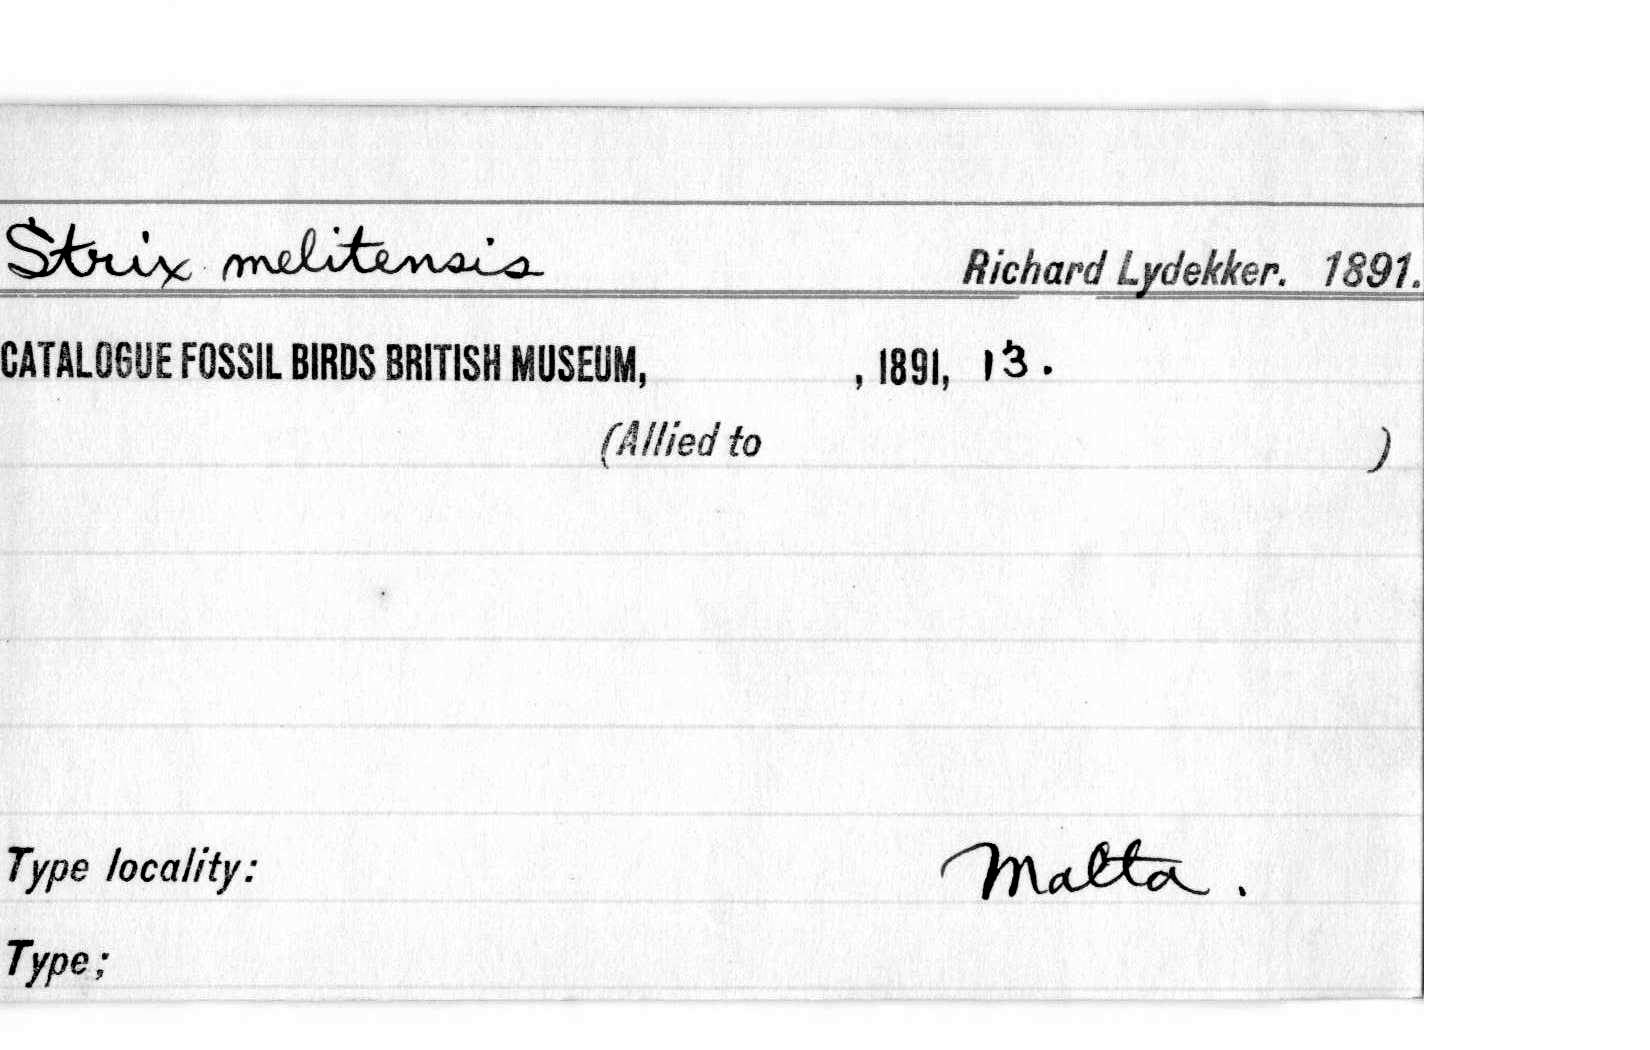 Strix melitensis Richard Lydekker. 1891.
CATALOGUE FOSSIL BIRDS BRITISH MUSEUM, , 1891, 13.
(Allied to )
Type locality: Malta.
Type;